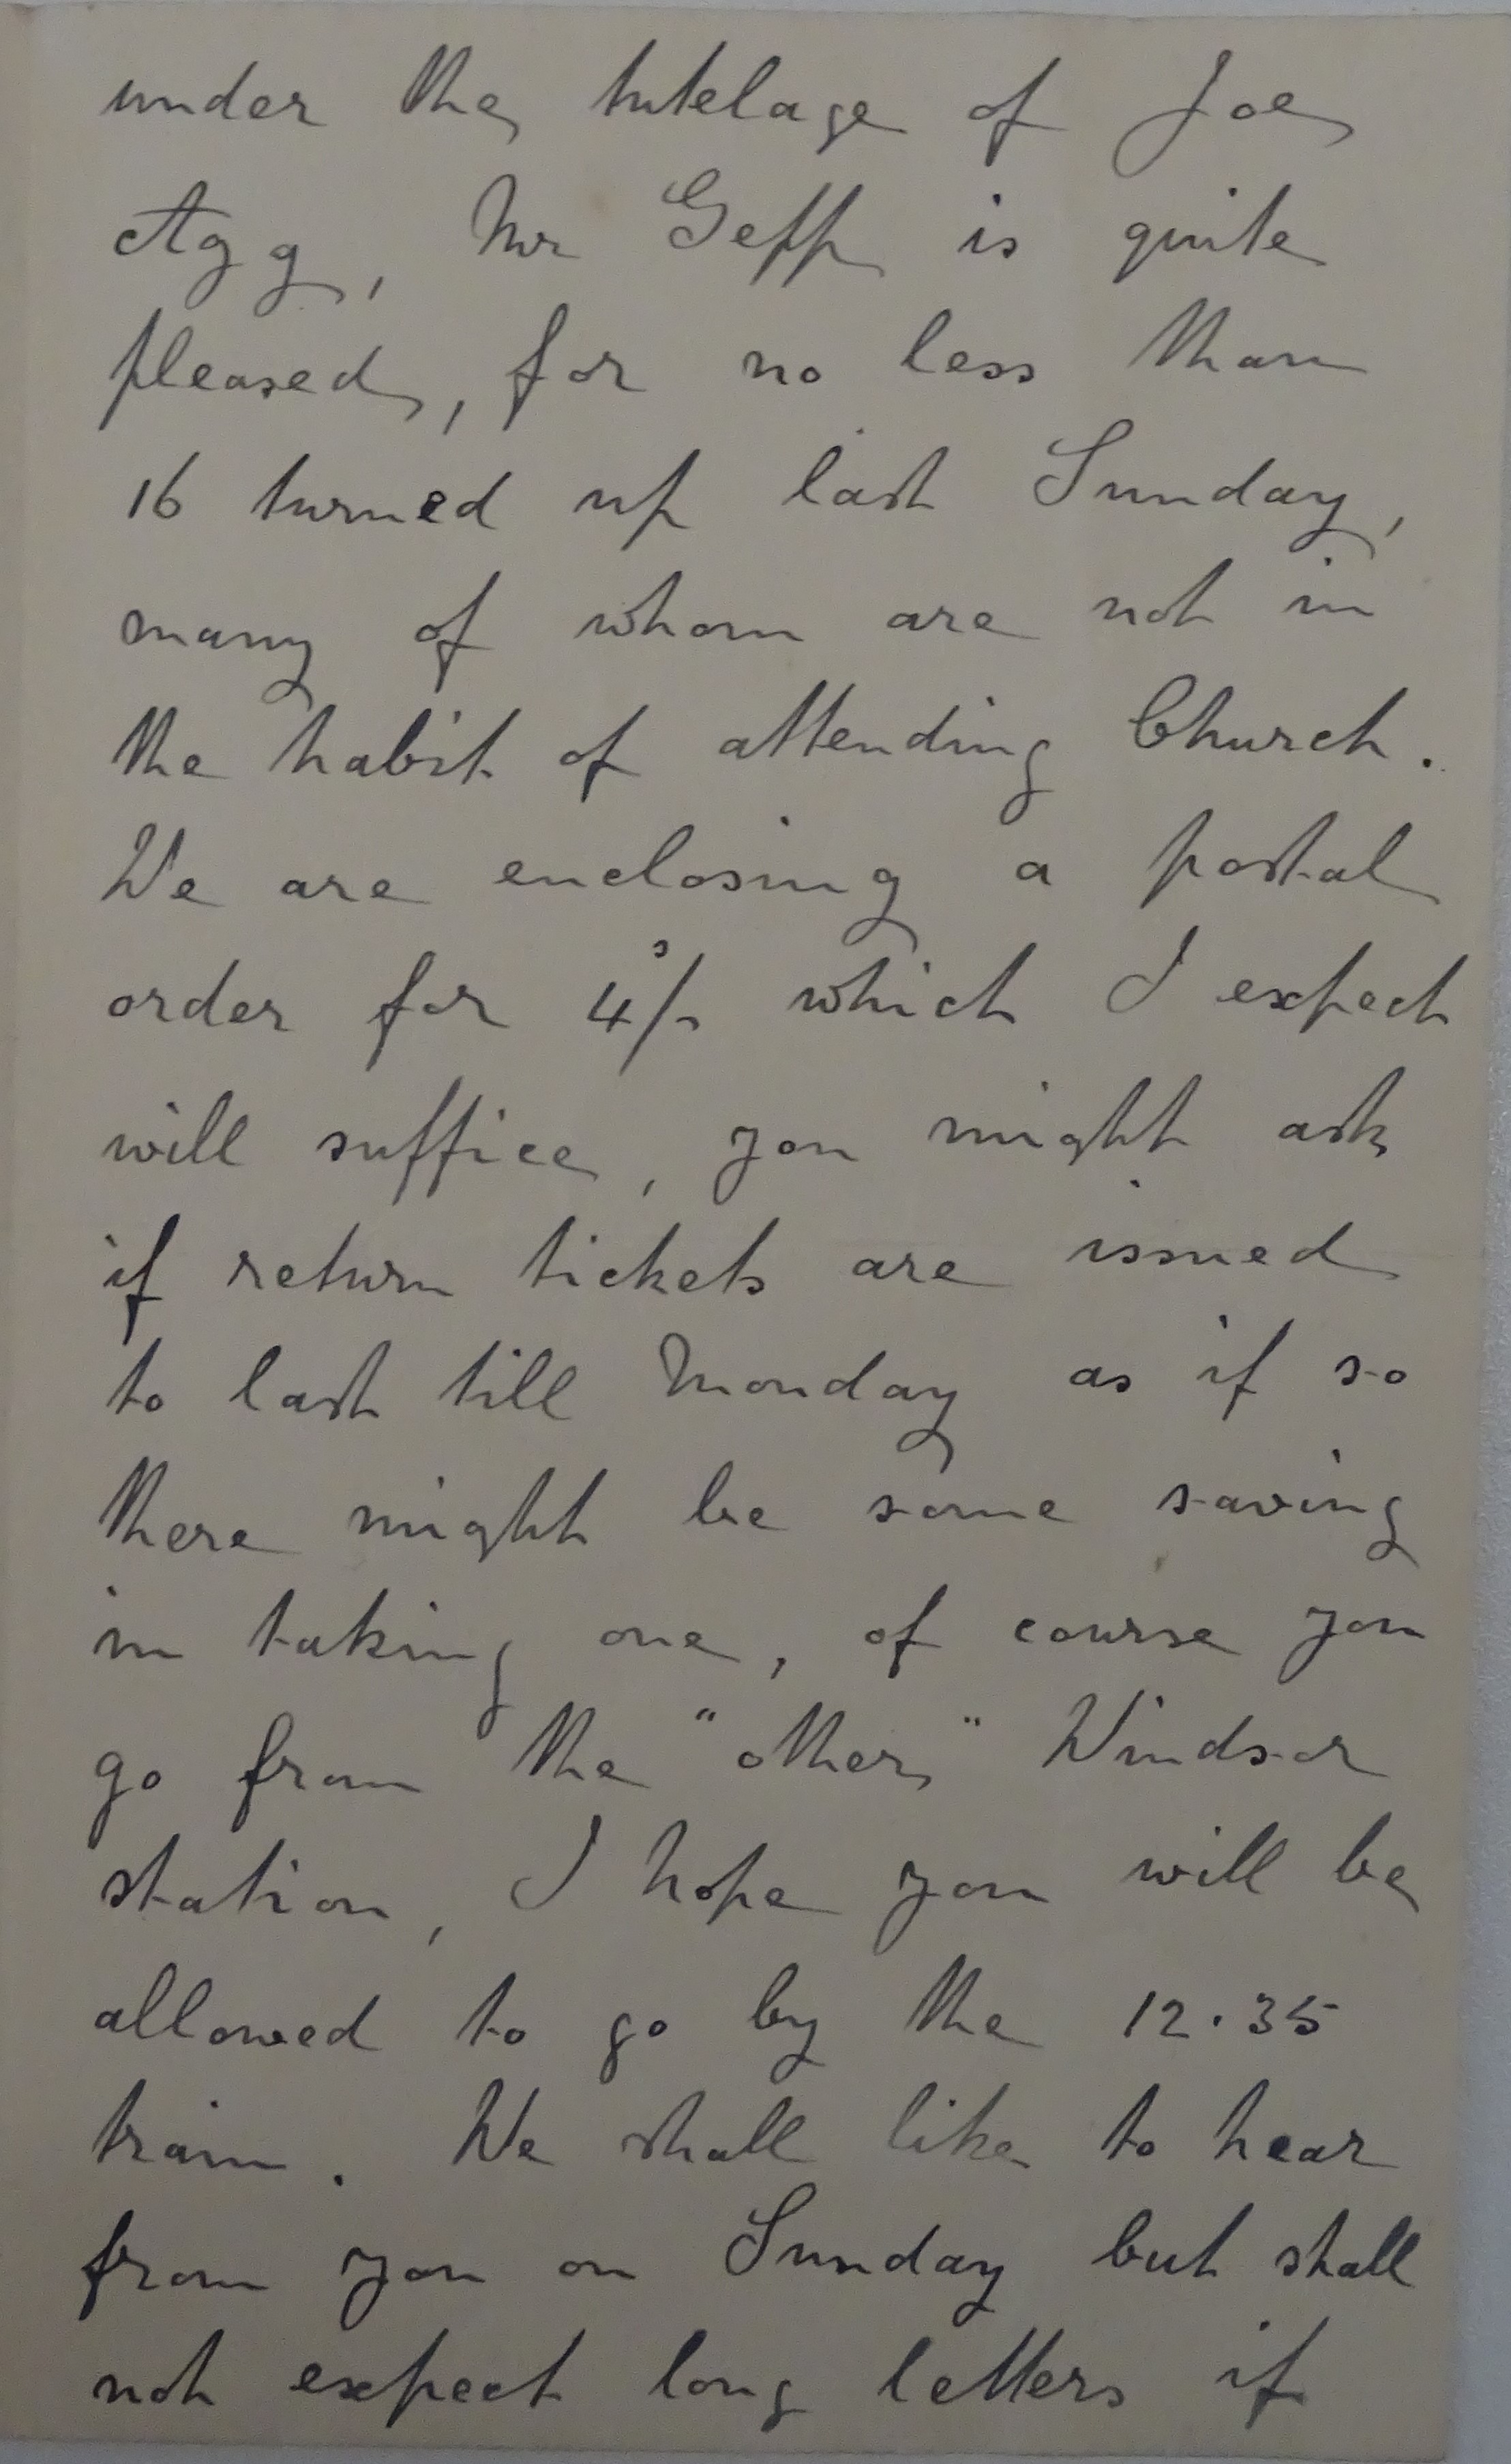 under the tutelage of Joe
Agg, Mr Gepp is quite
pleased, for no less than
16 turned up last Sunday,
many of whom are not in
the habit of attending Church.
We are enclosing a postal
order for 4/s which I expect
will suffice, you might ask
if return tickets are issued
to last till Monday as if so
there might be some saving
in taking one, of course you
go from the "other" Windsor
station, I hope you will be
allowed to go by the 12.35
train. We shall like to hear
from you on Sunday but shall
not expect long letters if